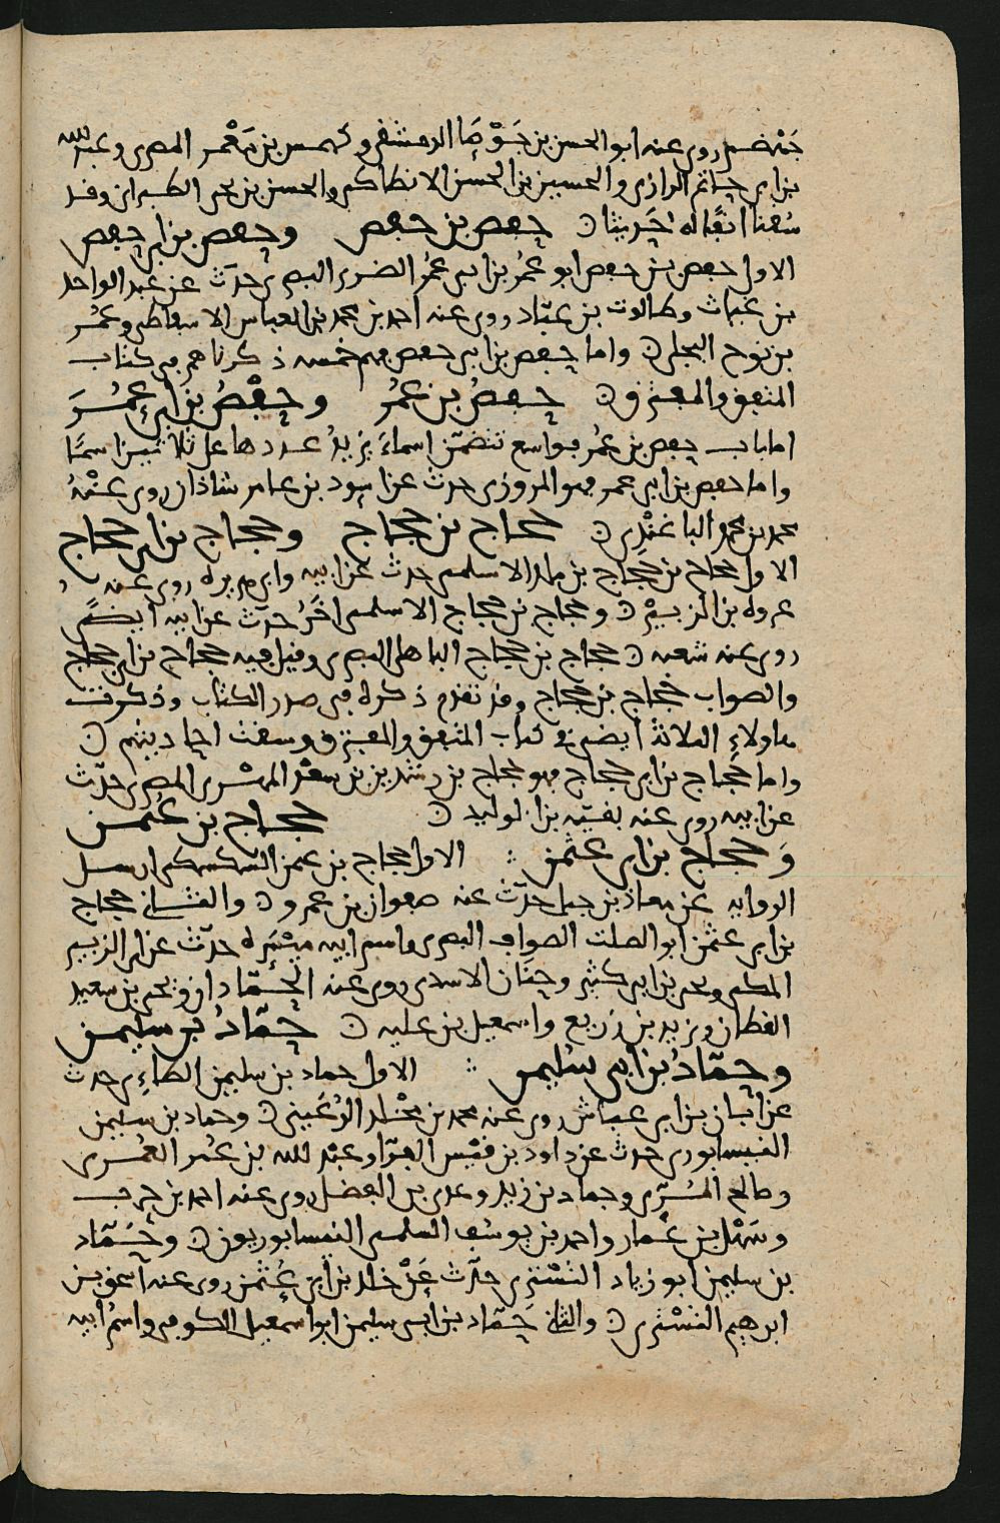 جهضم روى عنه ابو الحسن بن جَوْصَا الدمشقي وكهمس بن مَعْمر المصري وعبد الله
بن ابي حاتم الرازي والحسين بن الحسن الانطاكي والحسن بن يحيى الطبراني وقد
سُقنا انفًا له حَديثا ۞ حفص بن حفص وحفص بن ابي حفص
الاول حفص بن حفص ابو عُمر بن ابي عُمر الضرير البصري حدّث عن عبد الواحد
بن غياث وطالوت بن عبّاد روى عنه احمد بن محمد بن العباس الاسفاطي وعُمر
بن نوح البجلي ۞ واما حفص بن ابي حفص فهم خمسه ذكرناهم في كتاب
المتفق والمفترق ۞ حفصُ بن عُمر وحفْصُ بن ابي عُمَرَ
اما باب حفص بن عُمر فواسع تتضمّن اسماءً يزيدُ عددها على ثلاثين اسمًا
واما حفص بن ابي عمر فهو المروزي حدث عن اسود بن عامر شاذان روى عنْهُ
محمد بن محمد الباغَنْدي ۞ حجاج بن حجاج وحجاج بن ابي حجاج
الاول حجاج بن حجاج بن ملد الاسلمى حدث عن ابيه وابي هريره روى عنه
عروه بن الزبيرْ ۞ وحجاج بن حجاج الاسلمى اخَرُ حدّث عن ابيه ايضًى
روى عنه شعبه ۞ حجاج بن حجاج الباهلى البصري وقيل فيه حجاج بن ابي حجاج
والصواب حجاج بن حجاج وقد تقدم ذكره في صدر الكتاب وذكرت
هاولاءِ الثلاثة ايضى في كتاب المتفق والمفترق وسقت احاديثهم ۞
واما حجاج بن ابي حجاج فهو حجاج بن رشدين بن سعْد المهْري المصري حدّث
عن ابيه روى عنه بقيّه بن الوليد ۞ حجاج بن عثمن
وَحجاج بن ابي عثمن ؞ الاول حجاج بن عثمن السّكسكى ارسل
الروايه عن معاذ بن جبل حدّث عنه صفوان بن عمرو ۞ والثاني حجاج
بن ابي عثمن ابو الصلت الصواف البصري واسم ابيه ميْسَره حدّث عن ابي الزبير
المكي ويحيى بن ابي كثير وحنَان الاسدي روى عنه الحمّادان ويحيى بن سعيد
القطان ويزيد بن زريع واسمعيل بن عليه ۞ حمّادُ بن سليمن
وحمّادُ بن ابي سُليمن ؞ الاول حماد بن سليمن الطاءِي حدث
عن ابان بن ابي عياش روى عنه محمد بن مخْلد الرُعَيني ۞ وحماد بن سليمن
النيسابوري حدث عن داود بن قيْس الفرّا وعبْد الله بن عُمر العُمري
وصالح المُرّي وحماد بن زيد وعدي بن الفضل روى عنه احمد بن حرب
وسَهْل بن عمار واحمد بن يوسُف السلمى النيسابوريون ۞ وحمّاد
بن سليمن ابو زياد التسْتري حدّث عَنْ خلد بن ابي عُثمن روى عنه اسحق بن
ابرهيم التسْتري ۞ والثاني حَمّاد بن ابي سليمن ابو اسمعيل الكوفي واسمُ ابيه